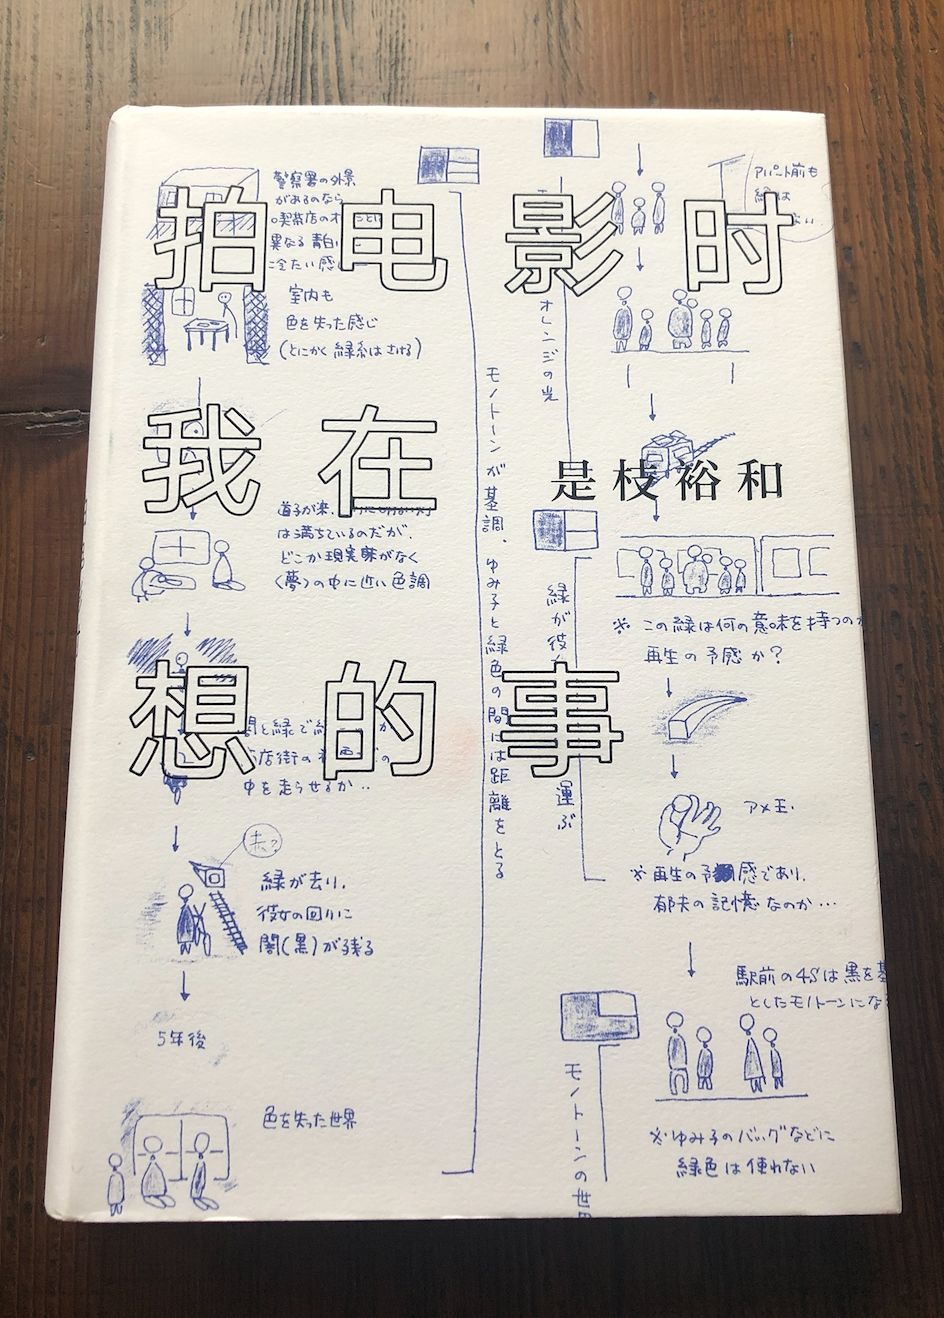 拍电影时
我在
想的事
是枝裕和
警察署の外景
があるのなら
異なる青白い
室内も
色を失った感じ
(とにかく緑系はさける)
は満ちているのだが、
どこか現実味がなく
〈夢〉の中に近い色調
中を走らせるか‥
赤?
緑が去り、
彼女の回りに
闇(黒)が残る
5年後
色を失った世界
モノトーンが基調、ゆみ子と緑色の間には距離をとる
オレンジの光
緑が役
運ぶ
モノトーンの世
アパート前も
緑は
※この緑は何の意味を持つのか
再生の予感か?
アメ玉・
※再生の予感であり、
郁夫の記憶なのか…
駅前の4Sは黒を基
としたモノトーンにな
※ゆみ子のバッグなどに
緑色は使わない